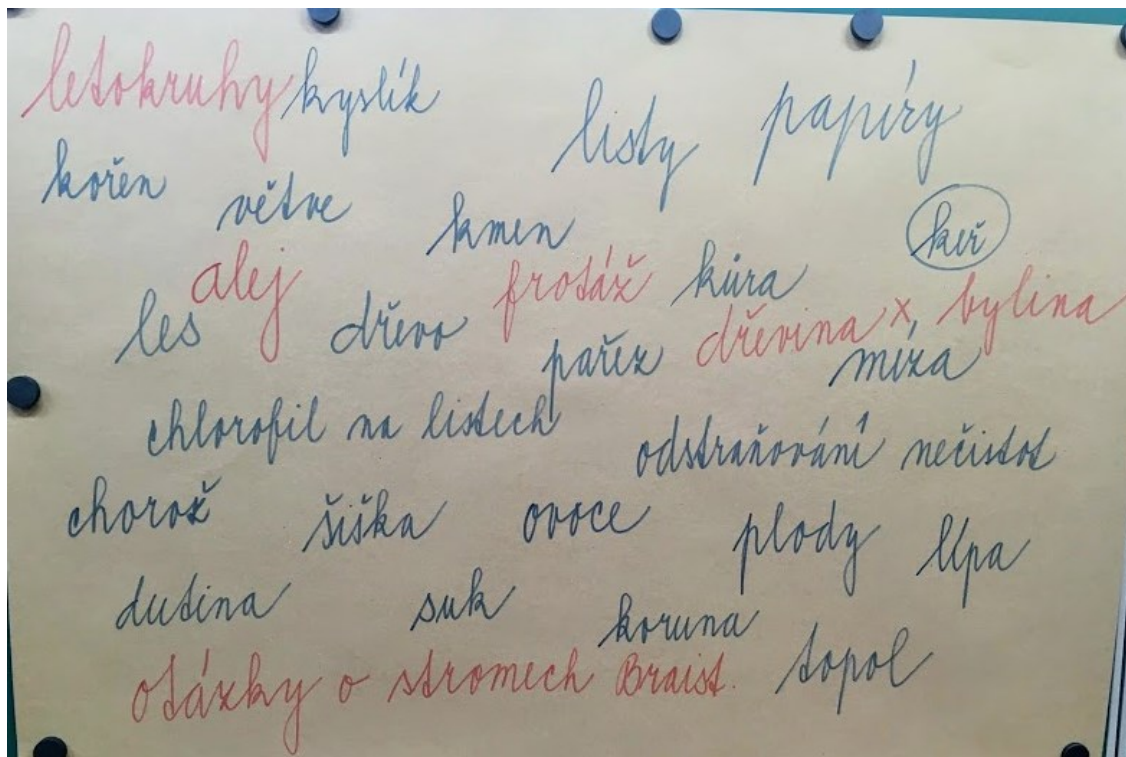 letokruhy kyslík listy papíry
kořen větve kmen keř
alej frotáž kůra
les dřevo dřevina x bylina
pařez míza
chlorofil na listech odstraňování nečistot
chorož šiška ovoce plody lípa
dutina suk koruna
otázky o stromech Braist. topol